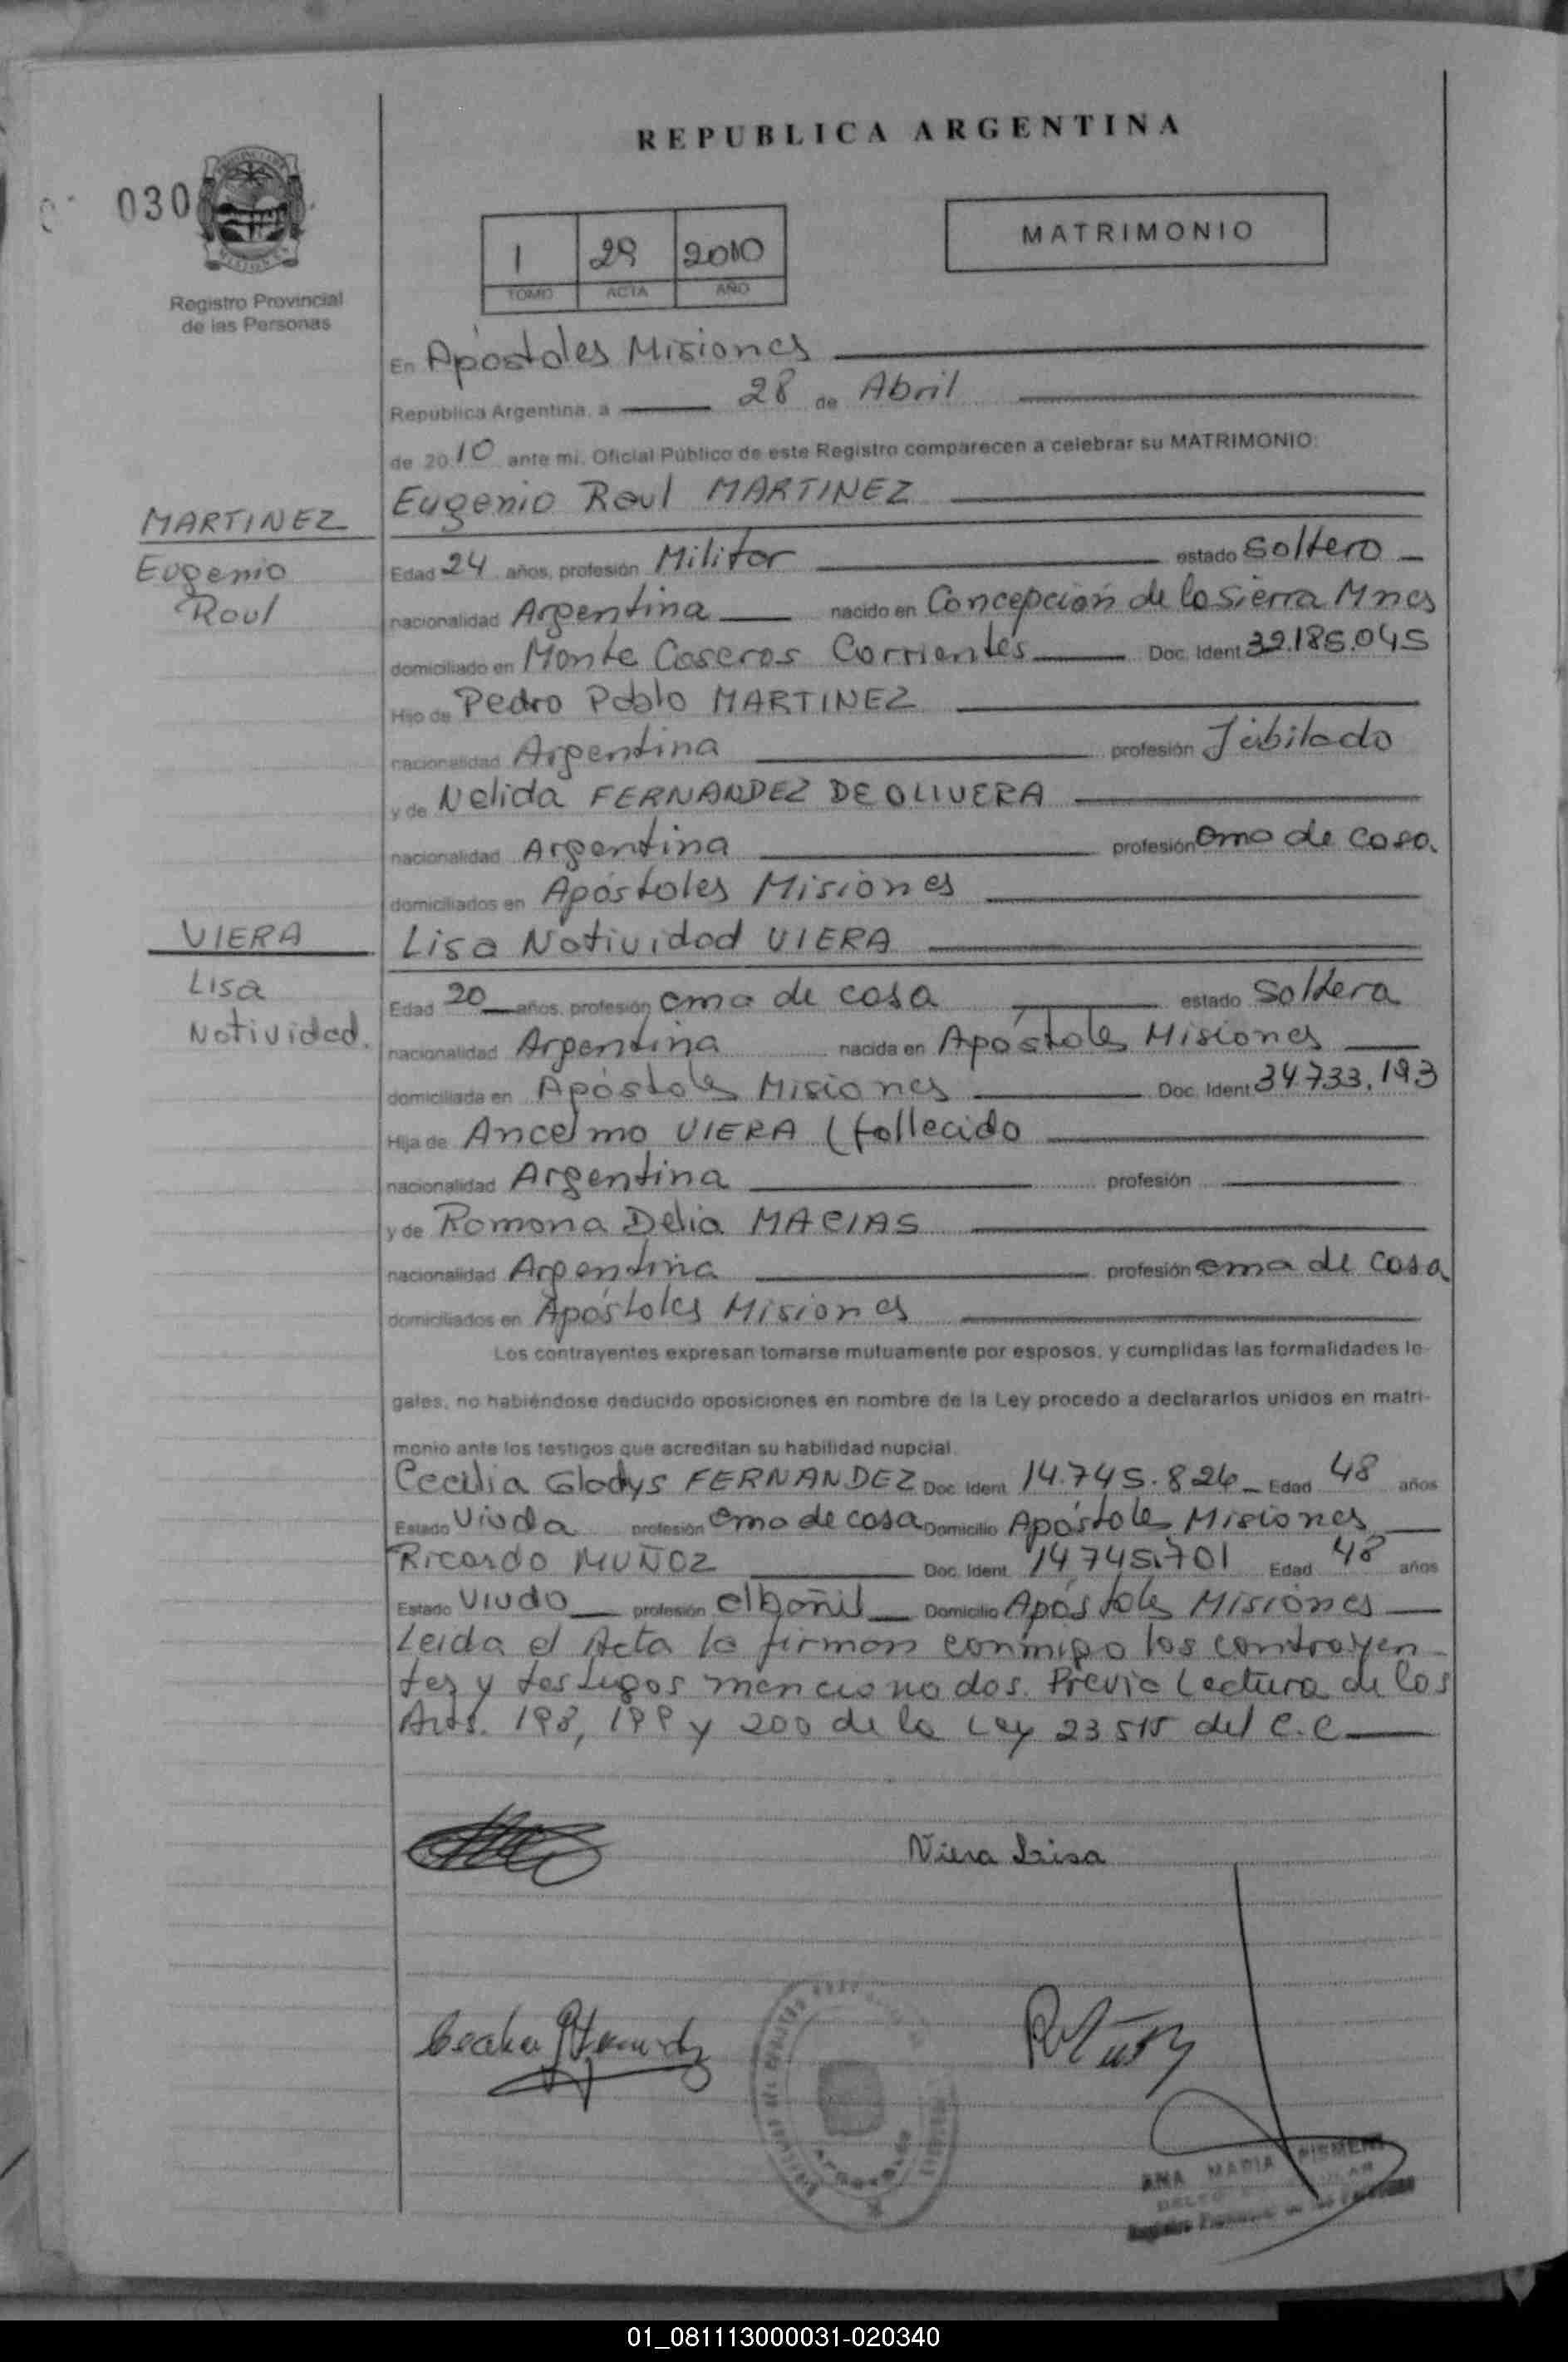 REPUBLICA ARGENTINA
030
MISIONES
Registro Provincial
de las Personas
1 29 2010
TOMO ACTA AÑO
MATRIMONIO
En Apóstoles Misiones
República Argentina, a 28 de Abril
de 2010 ante mi, Oficial Público de este Registro comparecen a celebrar su MATRIMONIO:
MARTINEZ
Eugenio
Raul
Eugenio Raul MARTINEZ
Edad 24 años, profesión Militar estado Soltero
nacionalidad Argentina nacido en Concepción de la Sierra Mnes
domiciliado en Monte Caseros Corrientes Doc. Ident 32.185.045
Hijo de Pedro Pablo MARTINEZ
nacionalidad Argentina profesión Jubilado
y de Nelida FERNANDEZ DE OLIVERA
nacionalidad Argentina profesión ama de casa
domiciliados en Apóstoles Misiones
VIERA
Lisa
Natividad.
Lisa Natividad VIERA
Edad 20 años, profesión ama de casa estado Soltera
nacionalidad Argentina nacida en Apóstoles Misiones
domiciliada en Apóstoles Misiones Doc. Ident 34.733.193
Hija de Ancelmo VIERA (fallecido
nacionalidad Argentina profesión
y de Ramona Delia MACIAS
nacionalidad Argentina profesión ama de casa
domiciliados en Apóstoles Misiones
Los contrayentes expresan tomarse mutuamente por esposos, y cumplidas las formalidades le-
gales, no habiéndose deducido oposiciones en nombre de la Ley procedo a declararlos unidos en matri-
monio ante los testigos que acreditan su habilidad nupcial.
Cecilia Gladys FERNANDEZ Doc. Ident. 14.745.826 Edad 48 años
Estado Viuda profesión ama de casa Domicilio Apóstoles Misiones
Ricardo MUÑOZ Doc. Ident. 14.745.701 Edad 48 años
Estado Viudo profesión albañil Domicilio Apóstoles Misiones
Leida el Acta la firman conmigo los contrayen
tes y testigos mencionados. Previa Lectura de los
Arts. 198, 199 y 200 de la Ley 23515 del C.C
Viera Lisa
ANA MARIA
01_081113000031-020340